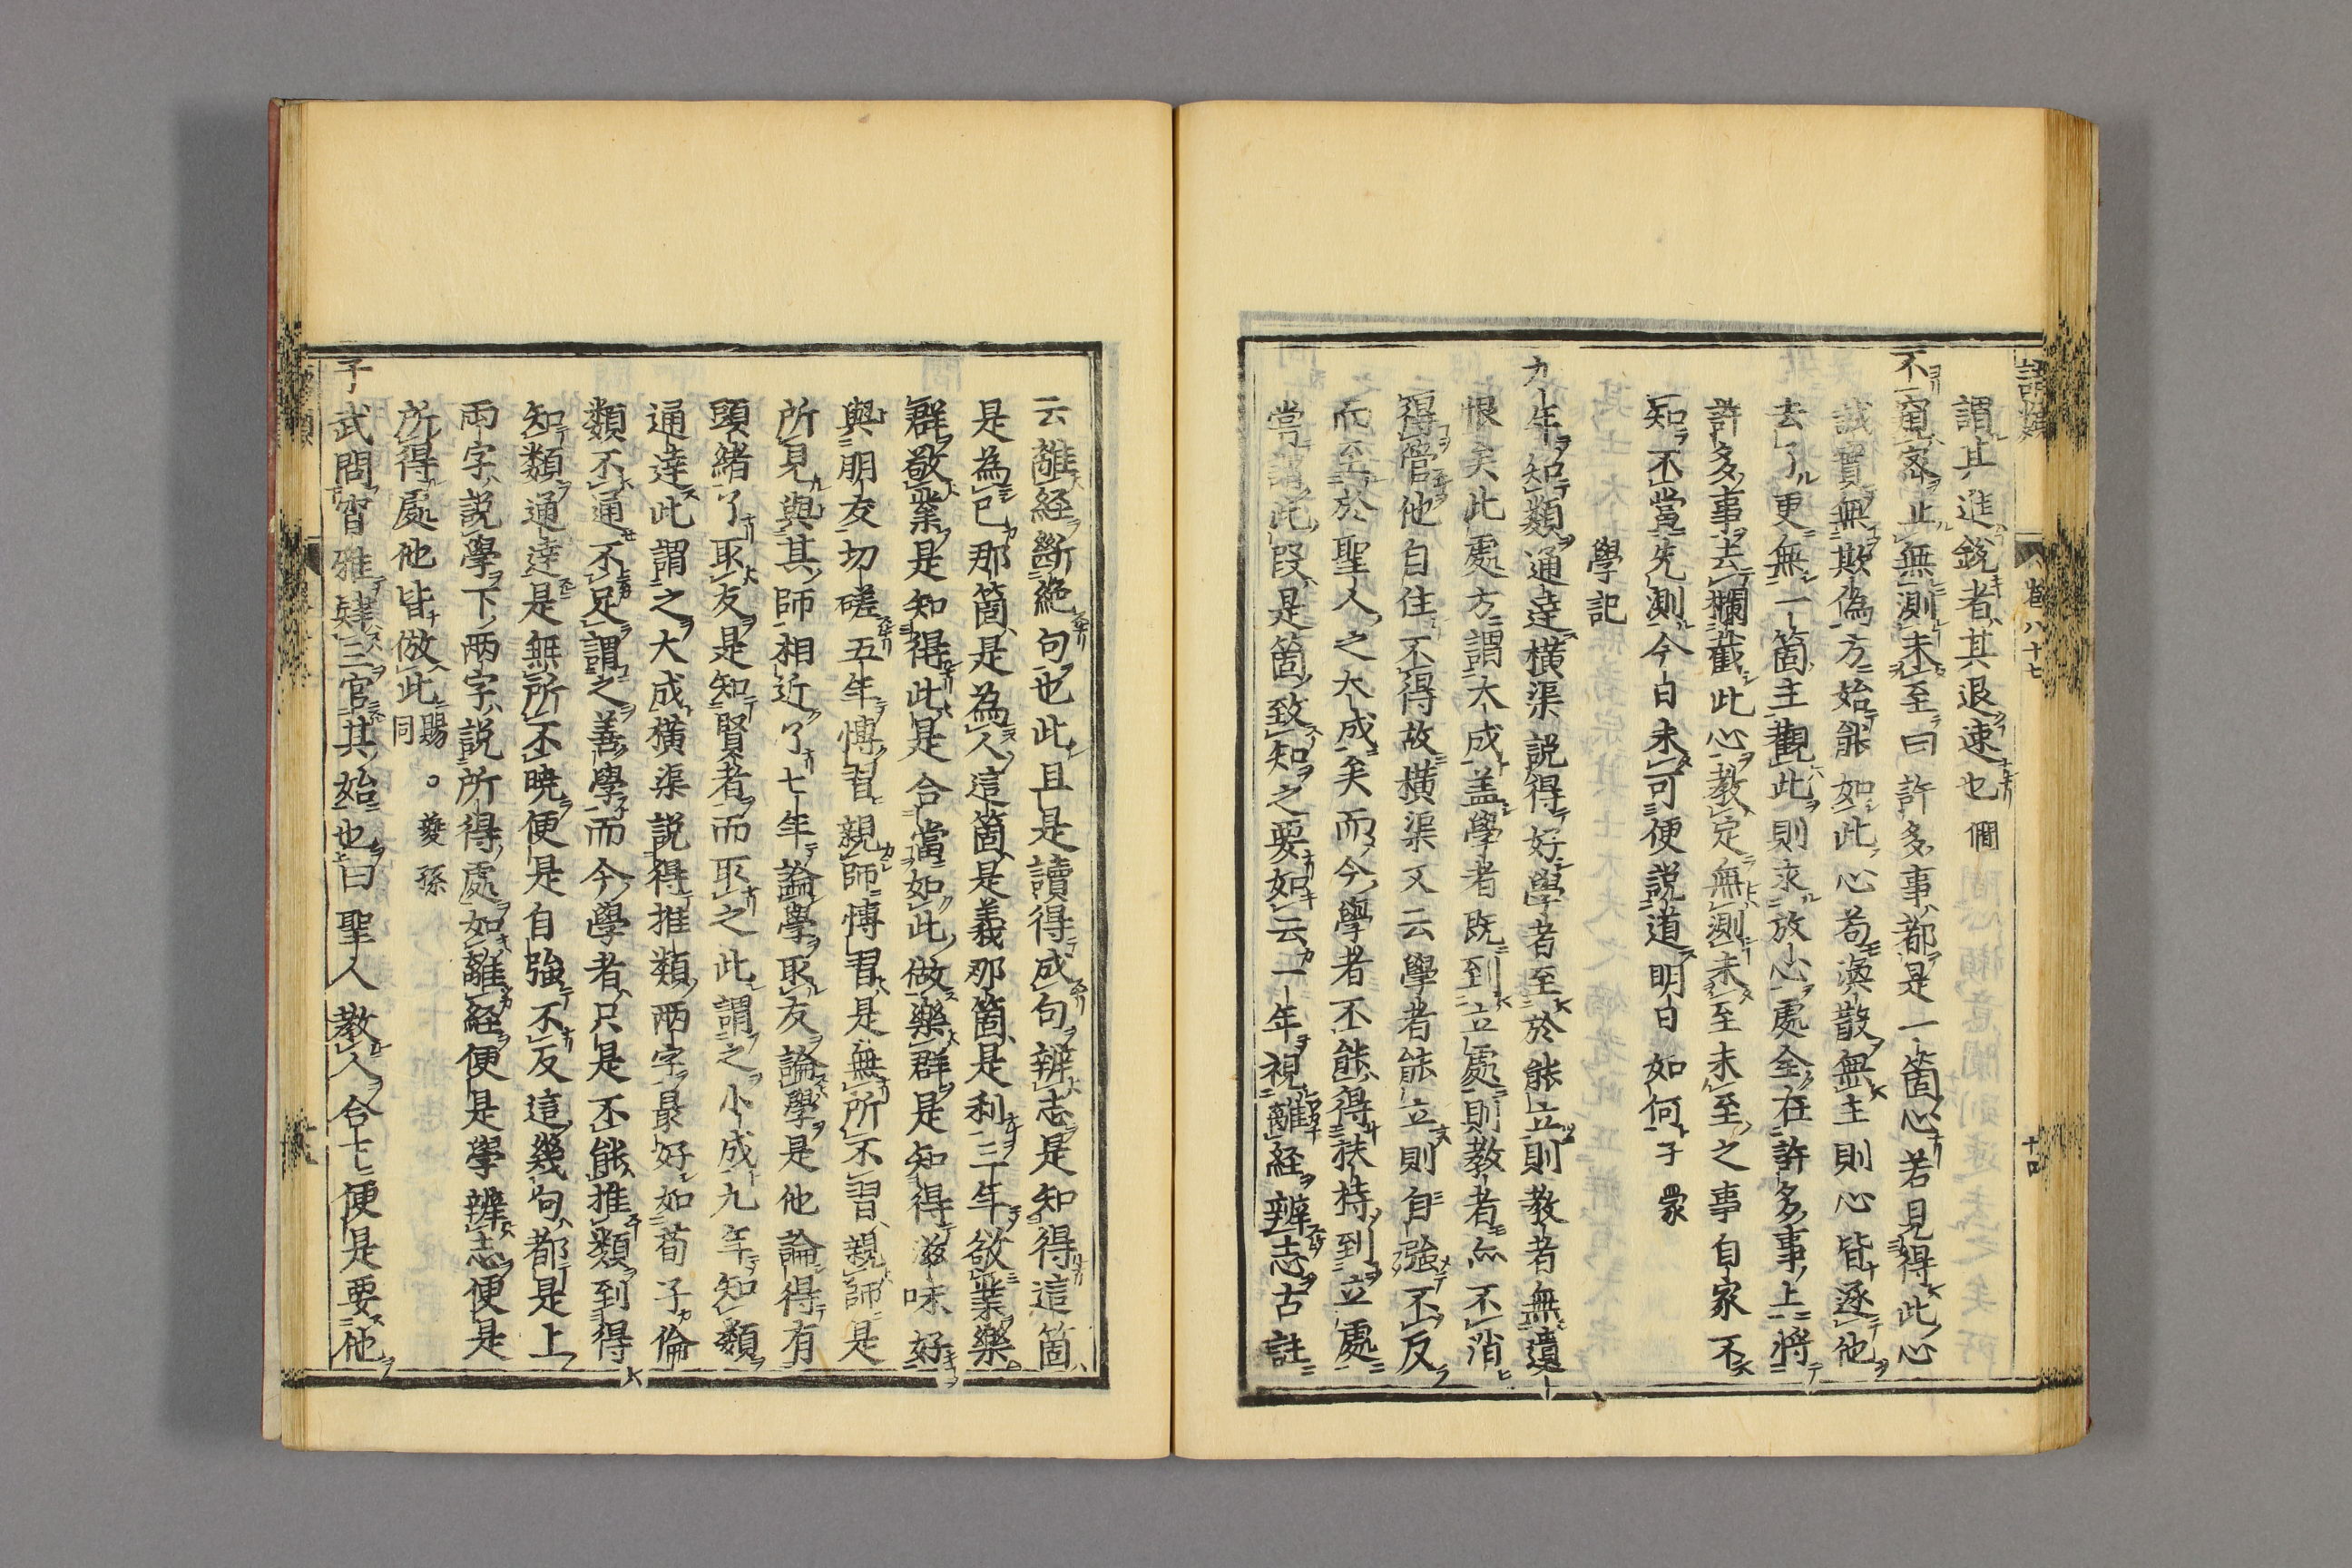 語類
卷八十七
十四
謂其進銳者其退速也僩
不窺密止無測未至曰許多事都是一箇心若見得此心
誠實無欺偽方始能如此心苟渙散無主則心皆逐他
去了更無一箇主觀此則求放心處全在許多事上將
許多事去攔截此心教定無測未至未至之事自家不
知不當先測今日未可便說道明日如何子䝉
學記
九年知類通達橫渠說得好學者至於能立則教者無遺
恨矣此處方謂大成盖學者既到立處則教者亦不消
得管他自住不得故橫渠又云學者能立則自强不反
而至於聖人之大成矣而今學者不能得扶持到立處
嘗說此段是箇致知之要如云一年視離経辨志古註
云離経斷絶句也此且是讀得成句辨志是知得這箇
是為己那箇是為人這箇是義那箇是利三年敬業樂
群敬業是知得此是合當如此做樂群是知得滋味好
與朋友切磋五年博習親師博習是無所不習親師是
所見與其師相近了七年論學取友論學是他論得有
頭緒了取友是知賢者而取之此謂之小成九年知類
通達此謂之大成橫渠說得推類兩字最好如荀子倫
類不通不足謂之善學而今學者只是不能推類到得
知類通達是無所不曉便是自強不反這幾句都是上
兩字說學下兩字說所得處如離経便是學辨志便是
所得處他皆倣此賜○䕫孫同
子武問宵雅肄三官其始也曰聖人教人合下便是要他